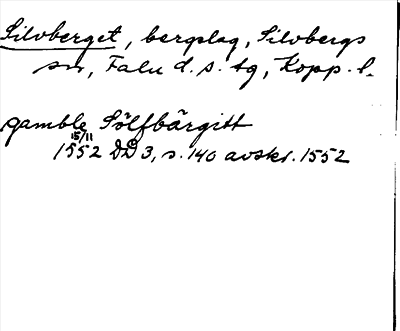 Silvberget, bergslag, Silvbergs
sn, Falu d. s. tg, Kopp. l.
gamble Sölfbärgitt
15/11
1552 DD 3, s. 140 avskr. 1552